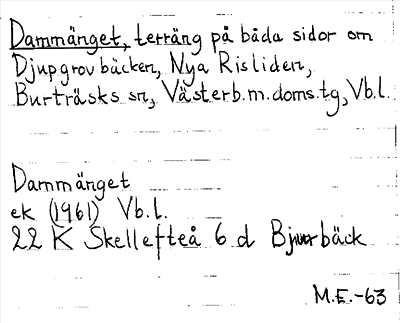 Dammänget, terräng på båda sidor om
Djupgrovbäcken, Nya Risliden,
Burträsks sn, Västerb.m.doms.tg, Vb.l.
Dammänget
ek (1961) Vb.l.
22 K Skellefteå 6 d Bjurbäck
M.E.-63